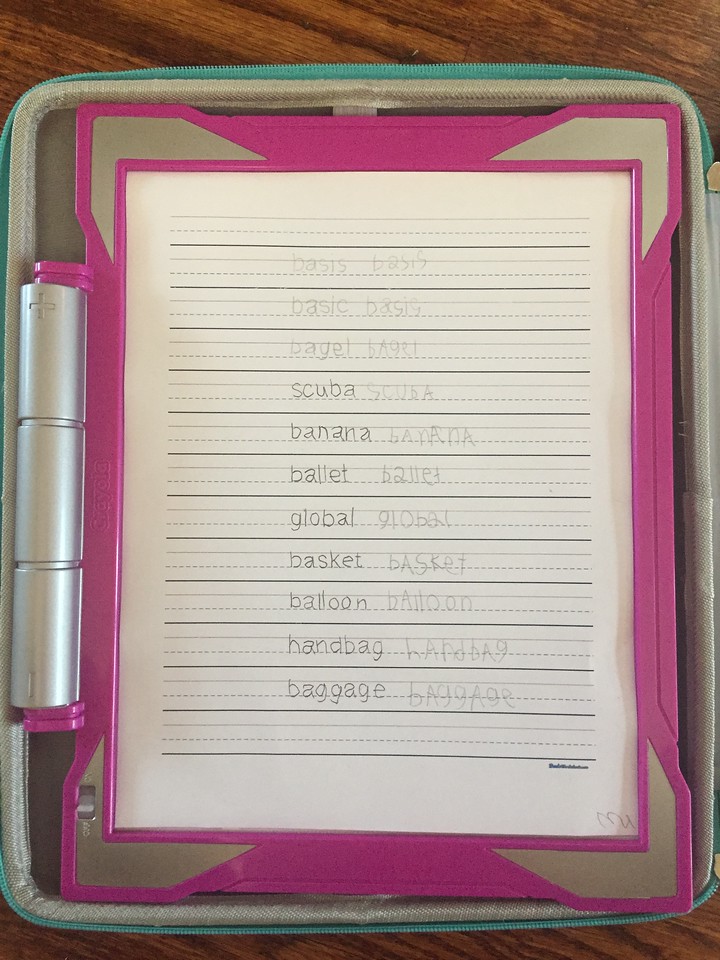 basis basis
basic basis
bagel bAgel
scuba SCUbA
banana bAnAnA
ballet ballet
global glObal
basket bASKet
balloon bAlloon
handbag hAndbAg
baggage bAggAge
Crayola